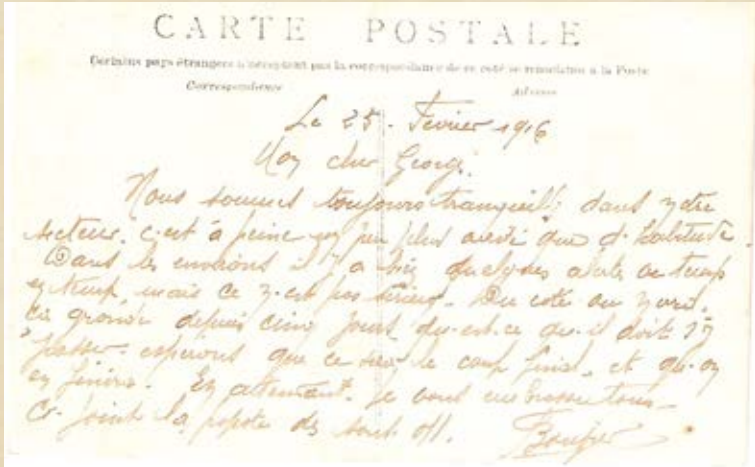 CARTE POSTALE
Certains pays étrangers n'acceptent pas la correspondance de ce coté se renseigner à la Poste
Correspondance Adresse
Le 25. Fevrier 1916
Mon cher Georges.
Nous sommes toujours tranquilles dans notre
secteur. c'est à peine un peu plus que d'habitude
Dans les environs il y a bien quelques de temps
en temps, mais ce n'est pas sérieux. Du coté du nord,
ca gronde depuis cinq jours qu'est-ce qu'il doit s'y
passer. esperons que ce sera le coup final, et qu'on
en finira. En attendant je vous embrasse tous.
Ci-joint la popote des sous off.